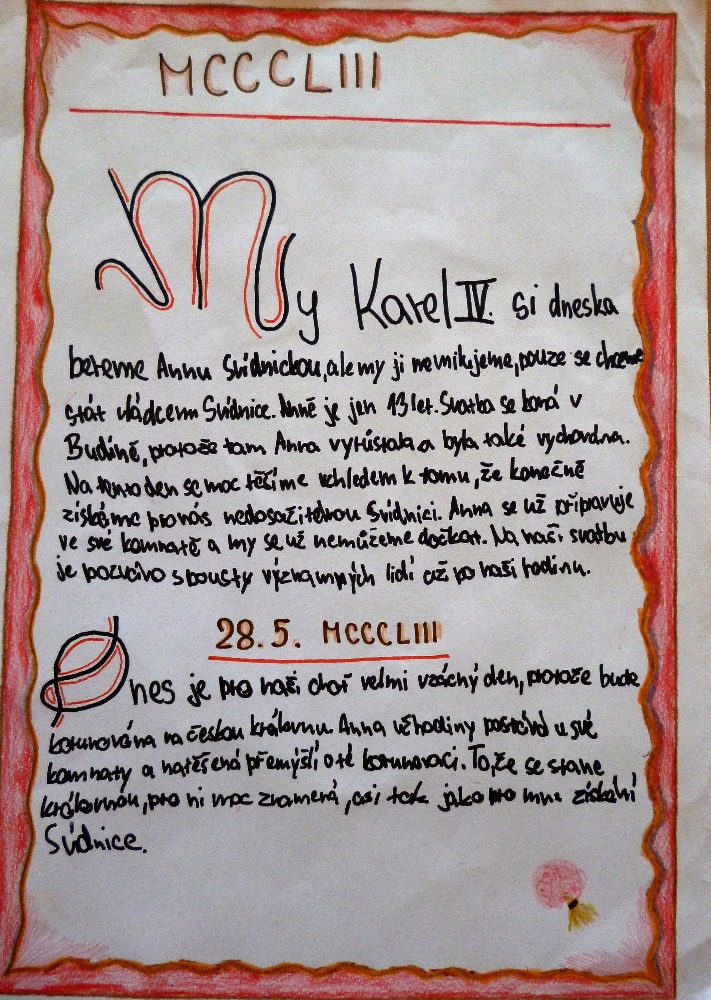 MCCCLIII
My Karel IV. si dneska
bereme Annu Svídnickou, ale my ji nemilujeme, pouze se chceme
stát vládcem Svídnice. Anně je jen 13 let. Svatba se koná v
Budíně, protože tam Anna vyrůstala a byla také vychována.
Na tento den se moc těšíme vzhledem k tomu, že konečně
získáme pro nás nedosažitelnou Svídnici. Anna se už připravuje
ve své komnatě a my se už nemůžeme dočkat. Na naši svatbu
je pozváno spousty významných lidí až po naši rodinu.
28.5. MCCCLIII
Dnes je pro naši choť velmi vzácný den, protože bude
korunována na českou královnu. Anna vě hodiny postává u své
komnaty a natěšená přemýšlí o té korunovaci. To, že se stane
královnou, pro ni moc znamená, asi tak jako pro mne získání
Svídnice.